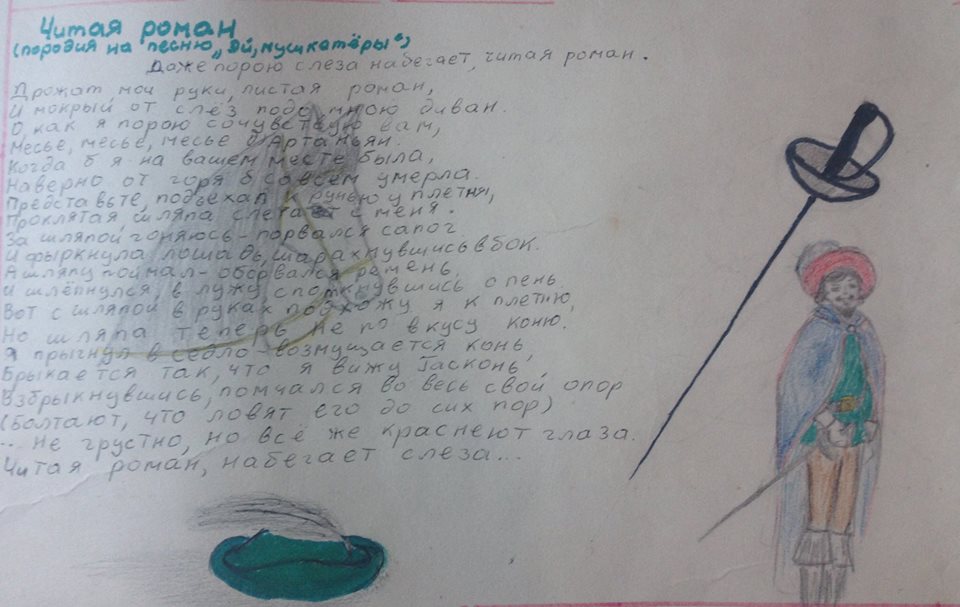 Читая роман
(породия на песню „Эй, мушкатёры“)
Даже порою слеза набегает, читая роман.
Дрожат мои руки, листая роман,
И мокрый от слёз подо мною диван.
О, как я порою сочувствую вам,
Месье, месье, месье Д'Артаньян.
Когда б я на вашем месте была,
Наверно от горя б совсем умерла.
Представьте, подъехал к ручью у плетня,
Проклятая шляпа слетает с меня.
За шляпой гоняюсь - порвался сапог
И фыркнула лошадь, шарахнувшись вбок.
А шляпу поймал - оборвался ремень,
И шлёпнулся в лужу споткнувшись о пень.
Вот с шляпой в руках подхожу я к плетню,
Но шляпа теперь не по вкусу коню.
Я прыгнул в седло - возмущается конь,
Брыкается так, что я вижу Гасконь,
Взбрыкнувшись, помчался во весь свой опор
(Болтают, что ловят его до сих пор)
... Не грустно, но всё же краснеют глаза.
Читая роман, набегает слеза...